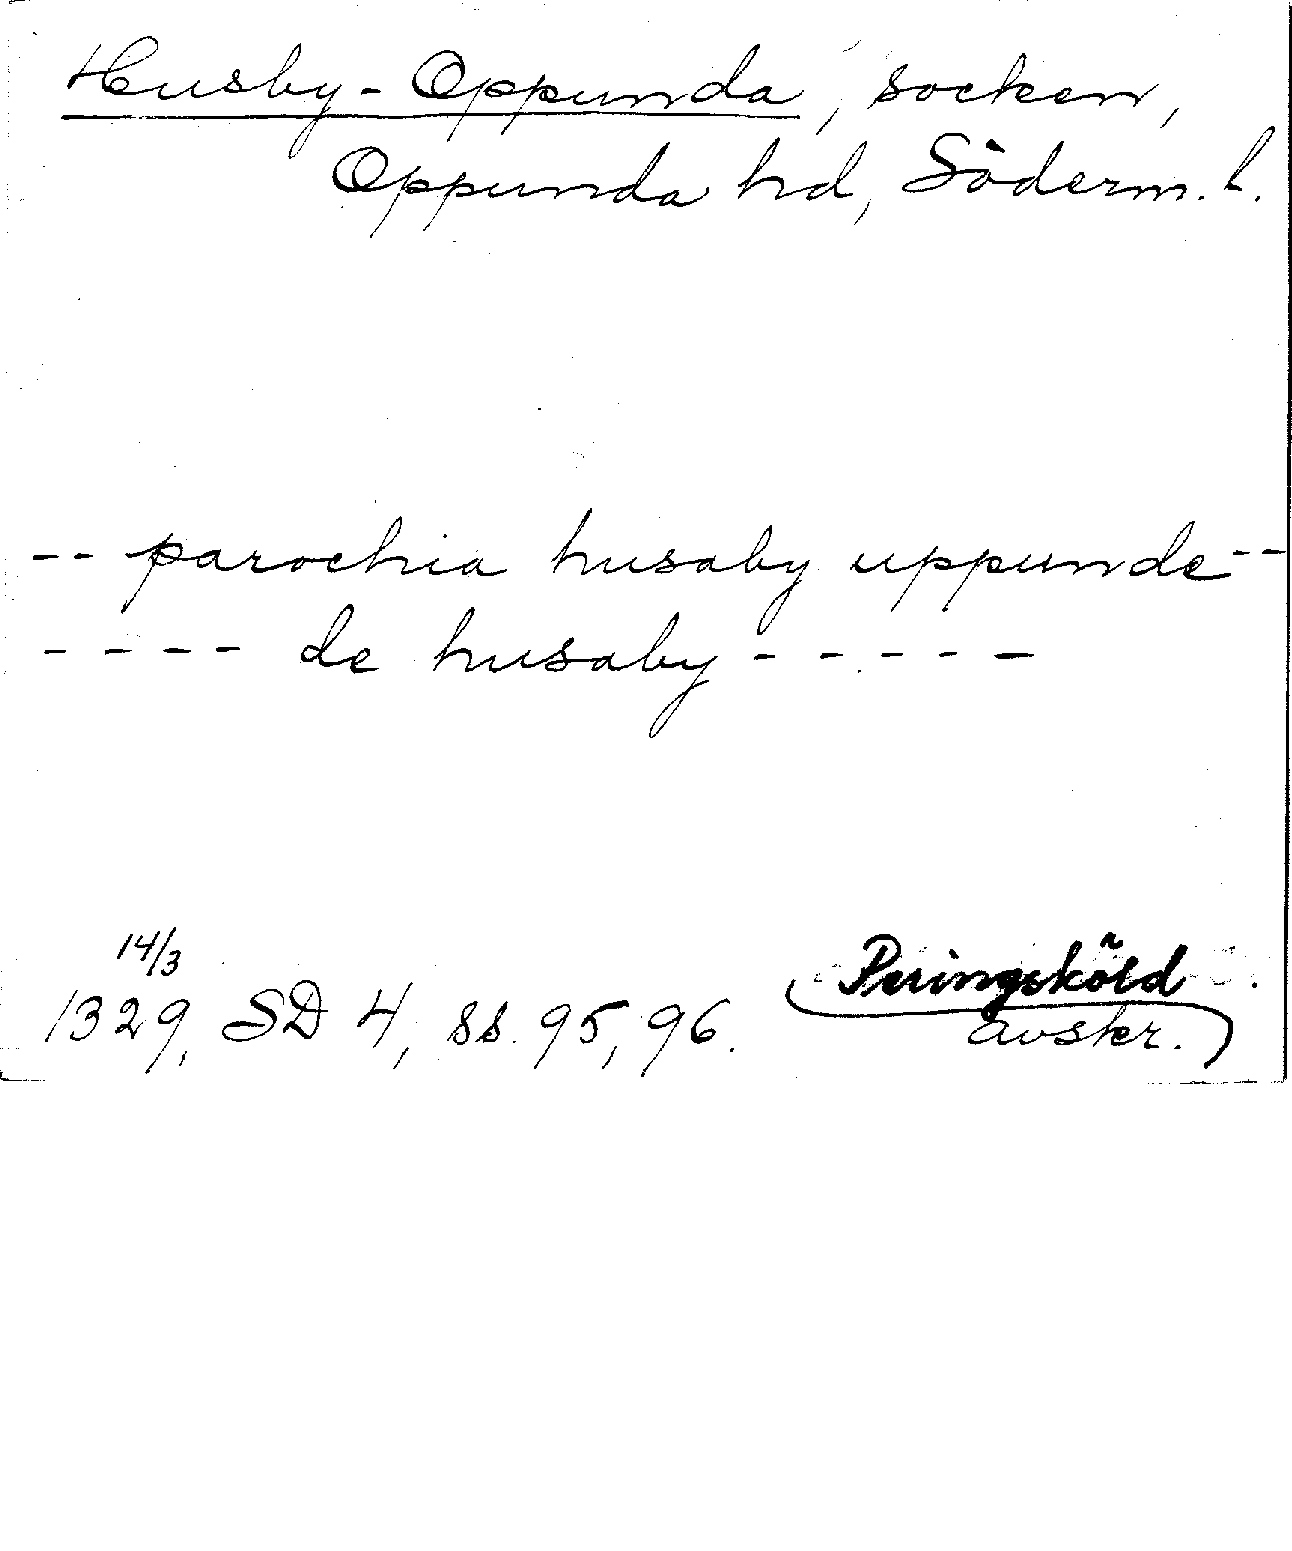 Husby-Oppunda, socken,
Oppunda hd, Söderm. l.
-- parochia husaby uppunde --
---- de husaby -----
14/3
1329, SD 4, ss. 95, 96.
Peringsköld
avskr.)